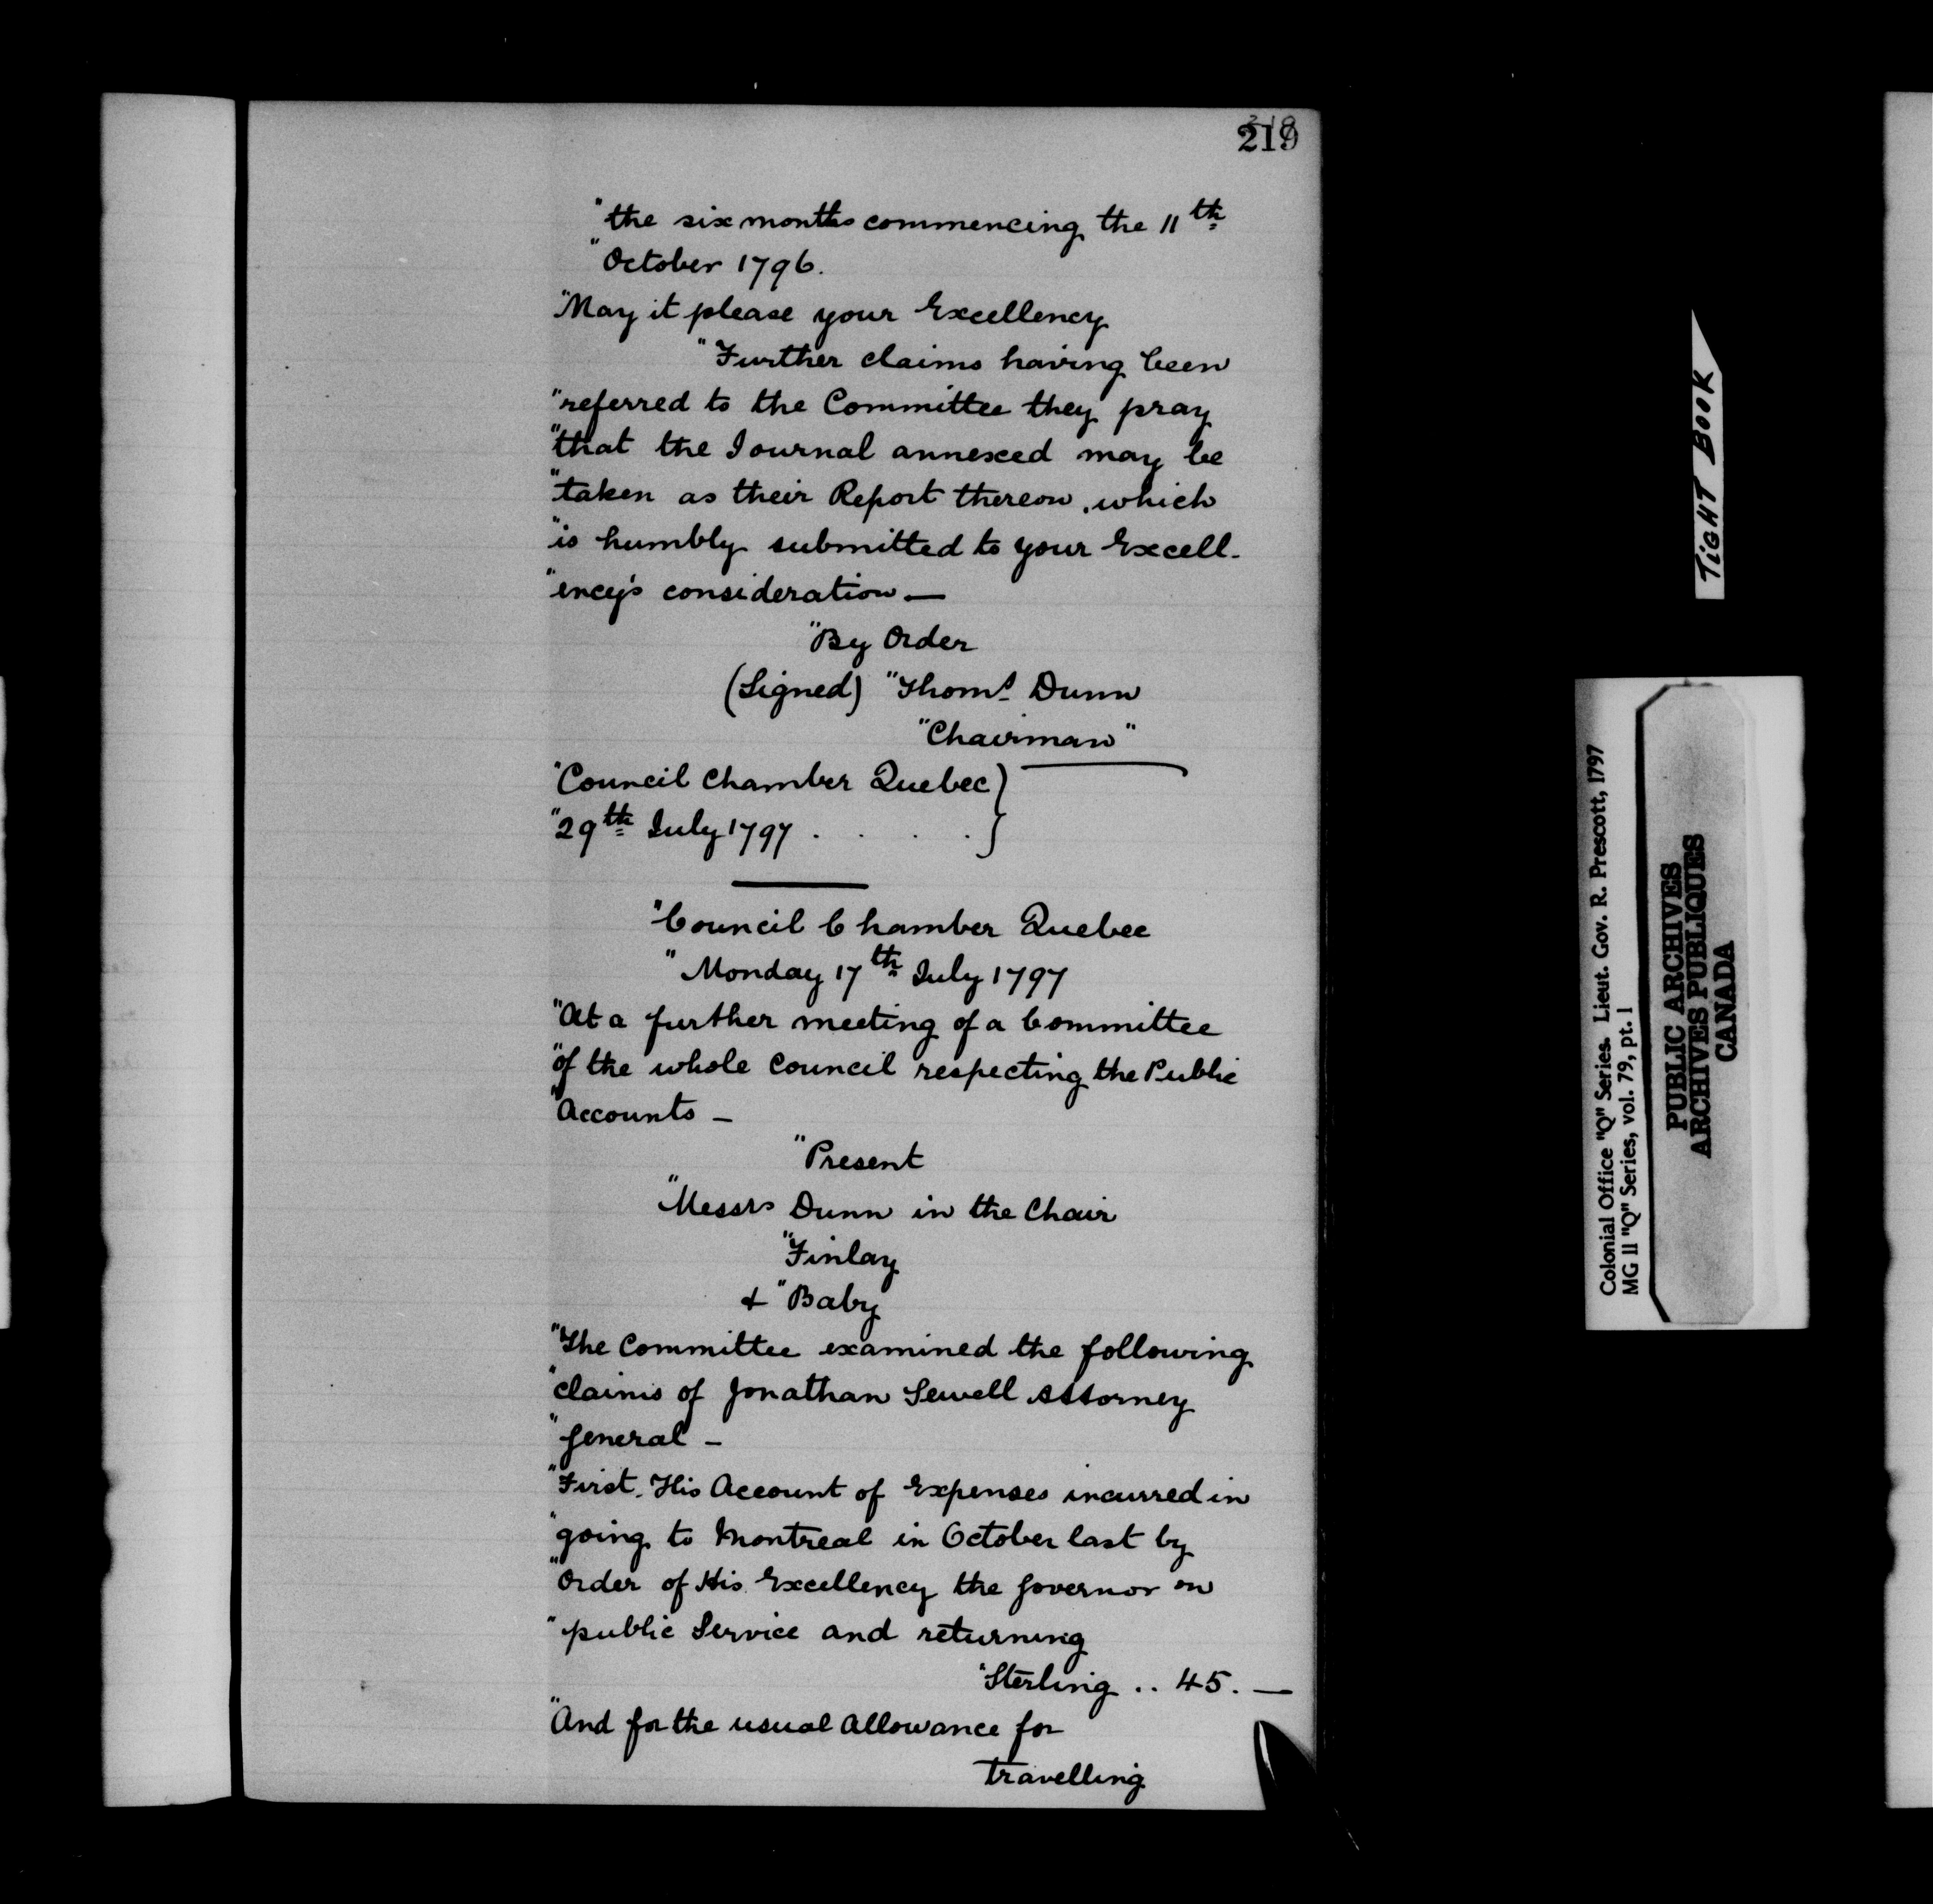 219
"the six months commencing the 11th
"October 1796.
"May it please your Excellency
"Further claims having been
"referred to the Committee they pray
"that the Journal annexed may be
"taken as their Report thereon, which
"is humbly submitted to your Excell-
"ency's consideration —
"By Order
(Signed) "Thoms Dunn
"Chairman"
"Council Chamber Quebec }
"29th July 1797 . . . . . }
"Council Chamber Quebec
"Monday 17th July 1797
"At a further meeting of a Committee
"of the whole Council respecting the Public
"Accounts —
"Present
"Messrs Dunn in the Chair
"Finlay
& "Baby
"The Committee examined the following
"claims of Jonathan Sewell Attorney
"General —
"First. His Account of Expenses incurred in
"going to Montreal in October last by
"Order of His Excellency the Governor on
"public Service and returning
"Sterling .. 45. —
"And for the usual allowance for
travelling
TIGHT BOOK
Colonial Office "Q" Series. Lieut. Gov. R. Prescott, 1797
MG 11 "Q" Series, vol. 79, pt. 1
PUBLIC ARCHIVES
ARCHIVES PUBLIQUES
CANADA